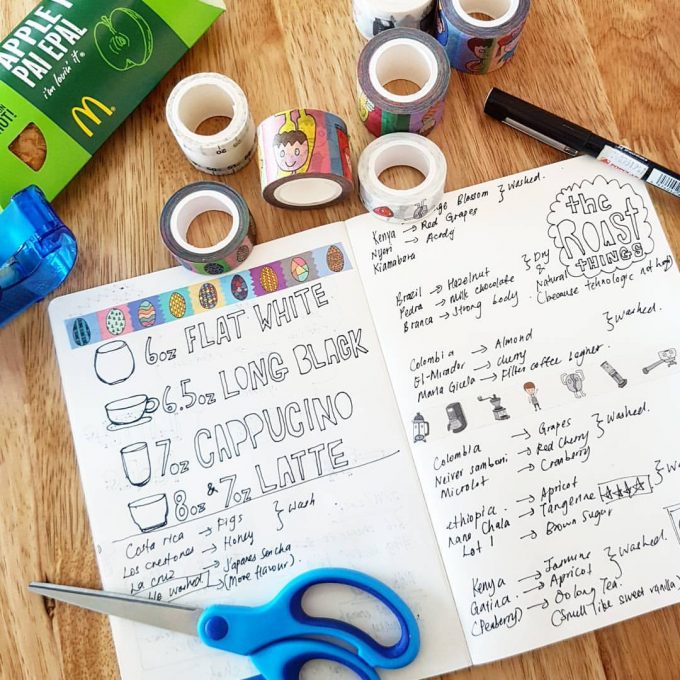 APPLE
PAI EPAL
i'm lovin' it
HOT!
6oz FLAT WHITE
6.5oz LONG BLACK
7oz CAPPUCINO
8oz & 7oz LATTE
Costa rica → Figs
Los crestones → Honey } Wash
La cruz → Japanes Sencha
washed (More flavour).
the
ROAST
THINGS
Blossom } Washed.
Kenya → Red Grapes
Nyeri → Acody
Kiamabara
Brazil → Hazelnut } Dry
Pedra → Milk chocolate &
Branca → Strong body Natural
(because technologic not high)
Colombia → Almond } Washed.
El-Mirador → Cherry
Maria Gicela → Filter coffee
Colombia → Grapes } Washed.
Neiver samboni → Red Cherry
Microlot → Cranberry
ethiopia → Apricot
Nano Chala → Tangerine
Lot 1 → Brown Sugar
Kenya → Jasmine } Washed.
Gatina → Apricot
(Peaberry) → Oolong Tea.
(Smell like sweet vanilla)